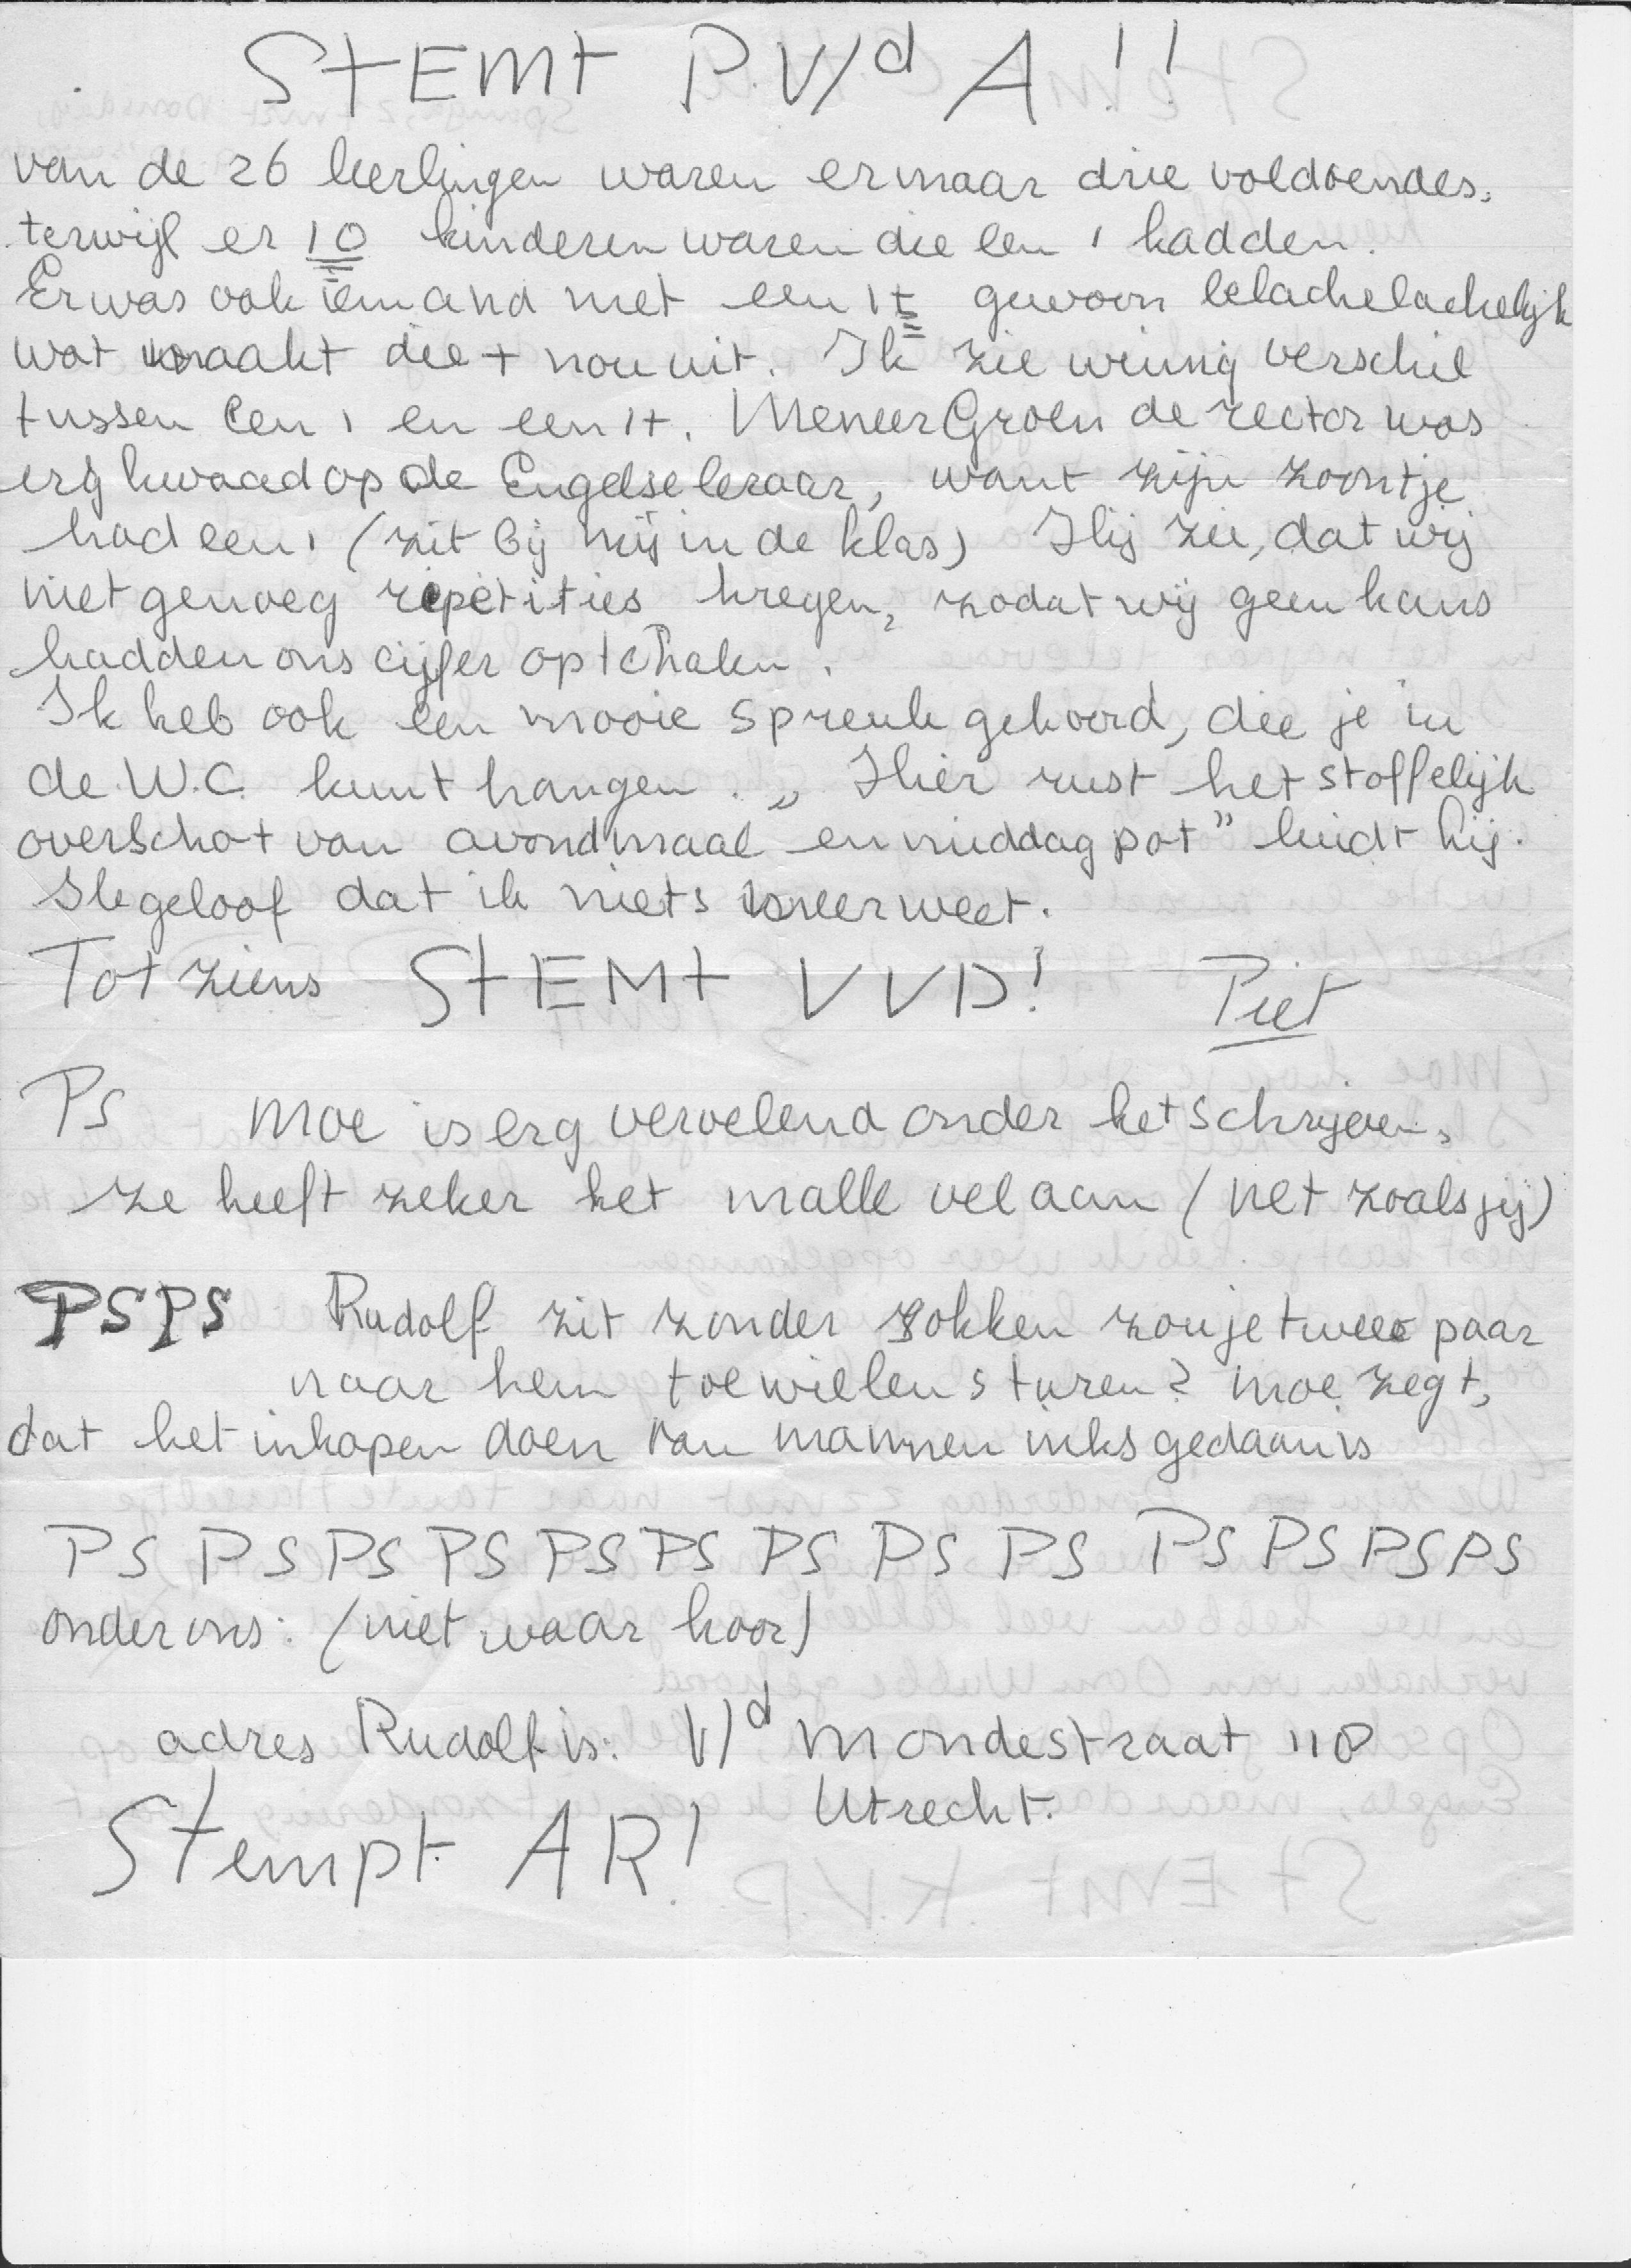 STEMT P.V/d A!!
van de 26 leerlingen waren er maar drie voldoendes,
terwijl er 10 kinderen waren die een 1 hadden.
Er was ook iemand met een 1+ gewoon belachelachelijk
wat maakt die + nou uit. Ik zie weinig verschil
tussen een 1 en een 1+. Meneer Groen de rector was
erg kwaad op de Engelse leraar, want zijn zoontje
had een 1 (zit bij mij in de klas) Hij zei, dat wij
niet genoeg repetities kregen, zodat wij geen kans
hadden ons cijfer op te halen.
Ik heb ook een mooie spreuk gehoord, die je in
de W.C. kunt hangen. „Hier rust het stoffelijk
overschot van avondmaal en middagpot” luidt hij.
Ik geloof dat ik niets meer weet.
Tot ziens STEMT VVD! Piet
Ps Moe is erg vervelend onder het schrijven,
ze heeft zeker het malle vel aan (net zoals jij)
PSPS Rudolf zit zonder sokken zou je twee paar
naar hem toe willen sturen? Moe zegt,
dat het inkopen doen van mannen niks gedaan is
PS PS PS PS PS PS PS PS PS PS PS PS PS
onder ons: (niet waar hoor)
adres Rudolf is: V/d Mondestraat 118
Utrecht.
Stempt AR!